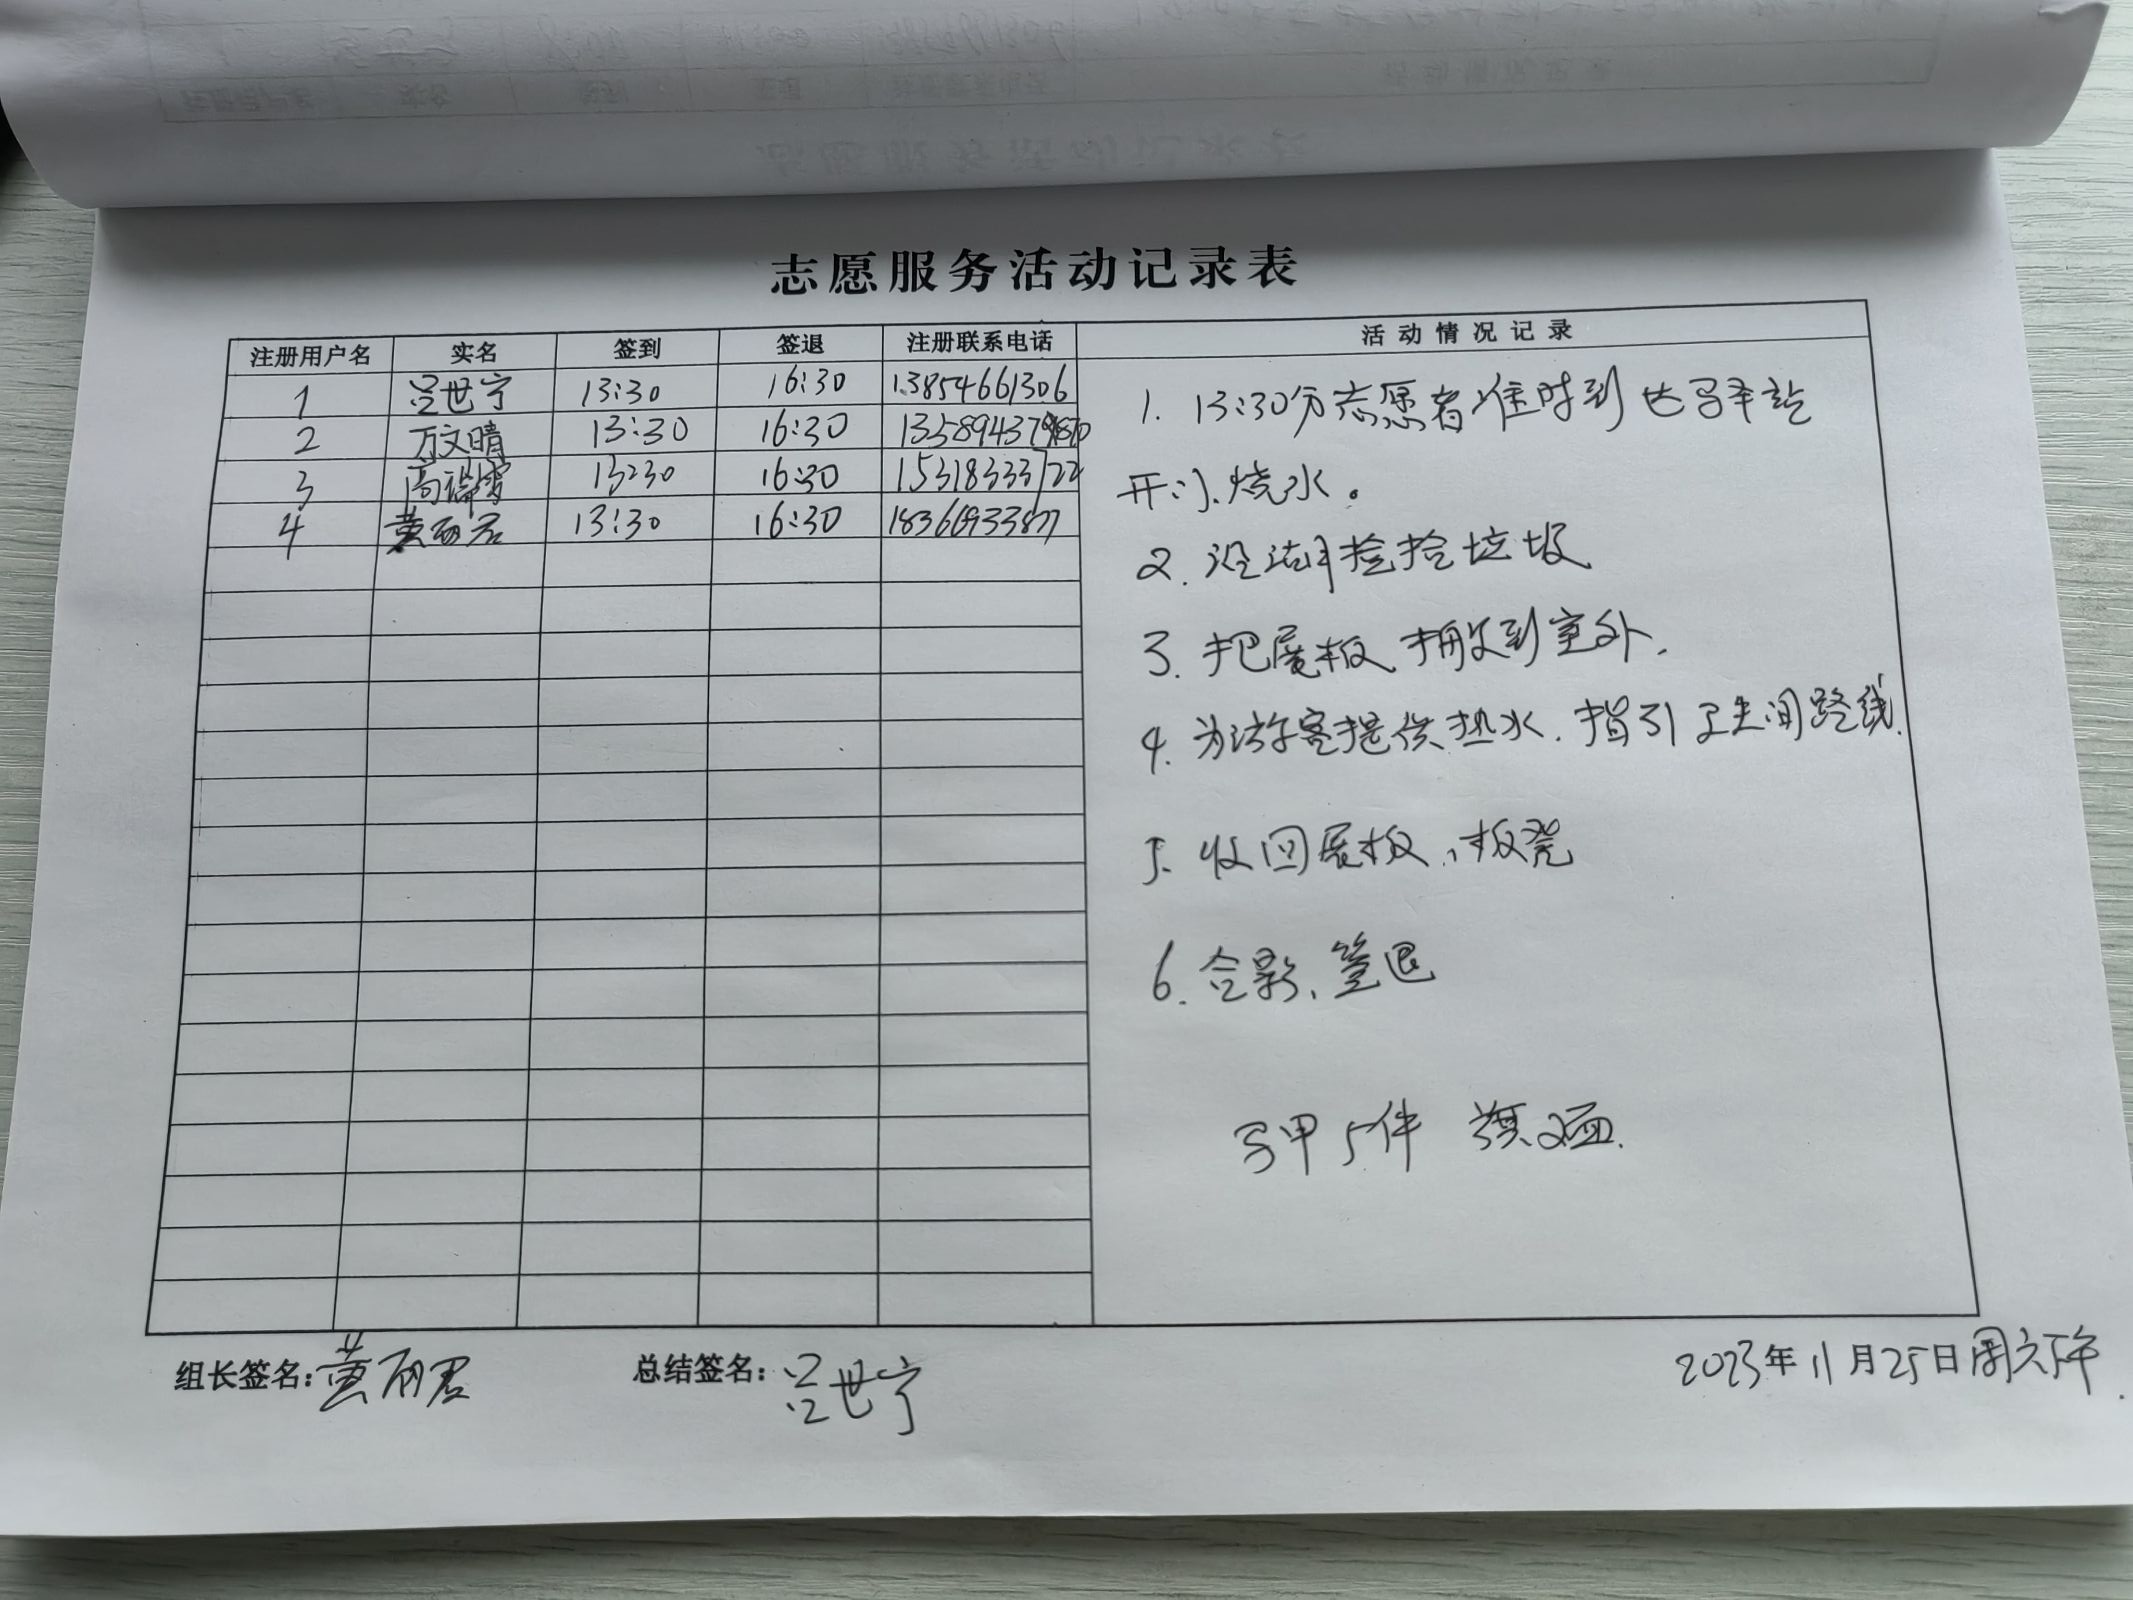 志愿服务活动记录表
注册用户名 实名 签到 签退 注册联系电话 活动情况记录
1 吕世宁 13:30 16:30 13854661306
2 万文晴 13:30 16:30
3 13:30 16:30 15318333722
4 黄丽君 13:30 16:30
1. 13:30分志愿者准时到达驿站
开门、烧水。
2. 沿湖捡拾垃圾
3. 把展板摆放到室外.
4. 为游客提供热水.指引卫生间路线.
5. 收回展板、板凳
6. 合影、签退
马甲5件 旗2面.
组长签名:黄丽君 总结签名:吕世宁 2023年11月25日周六下午.